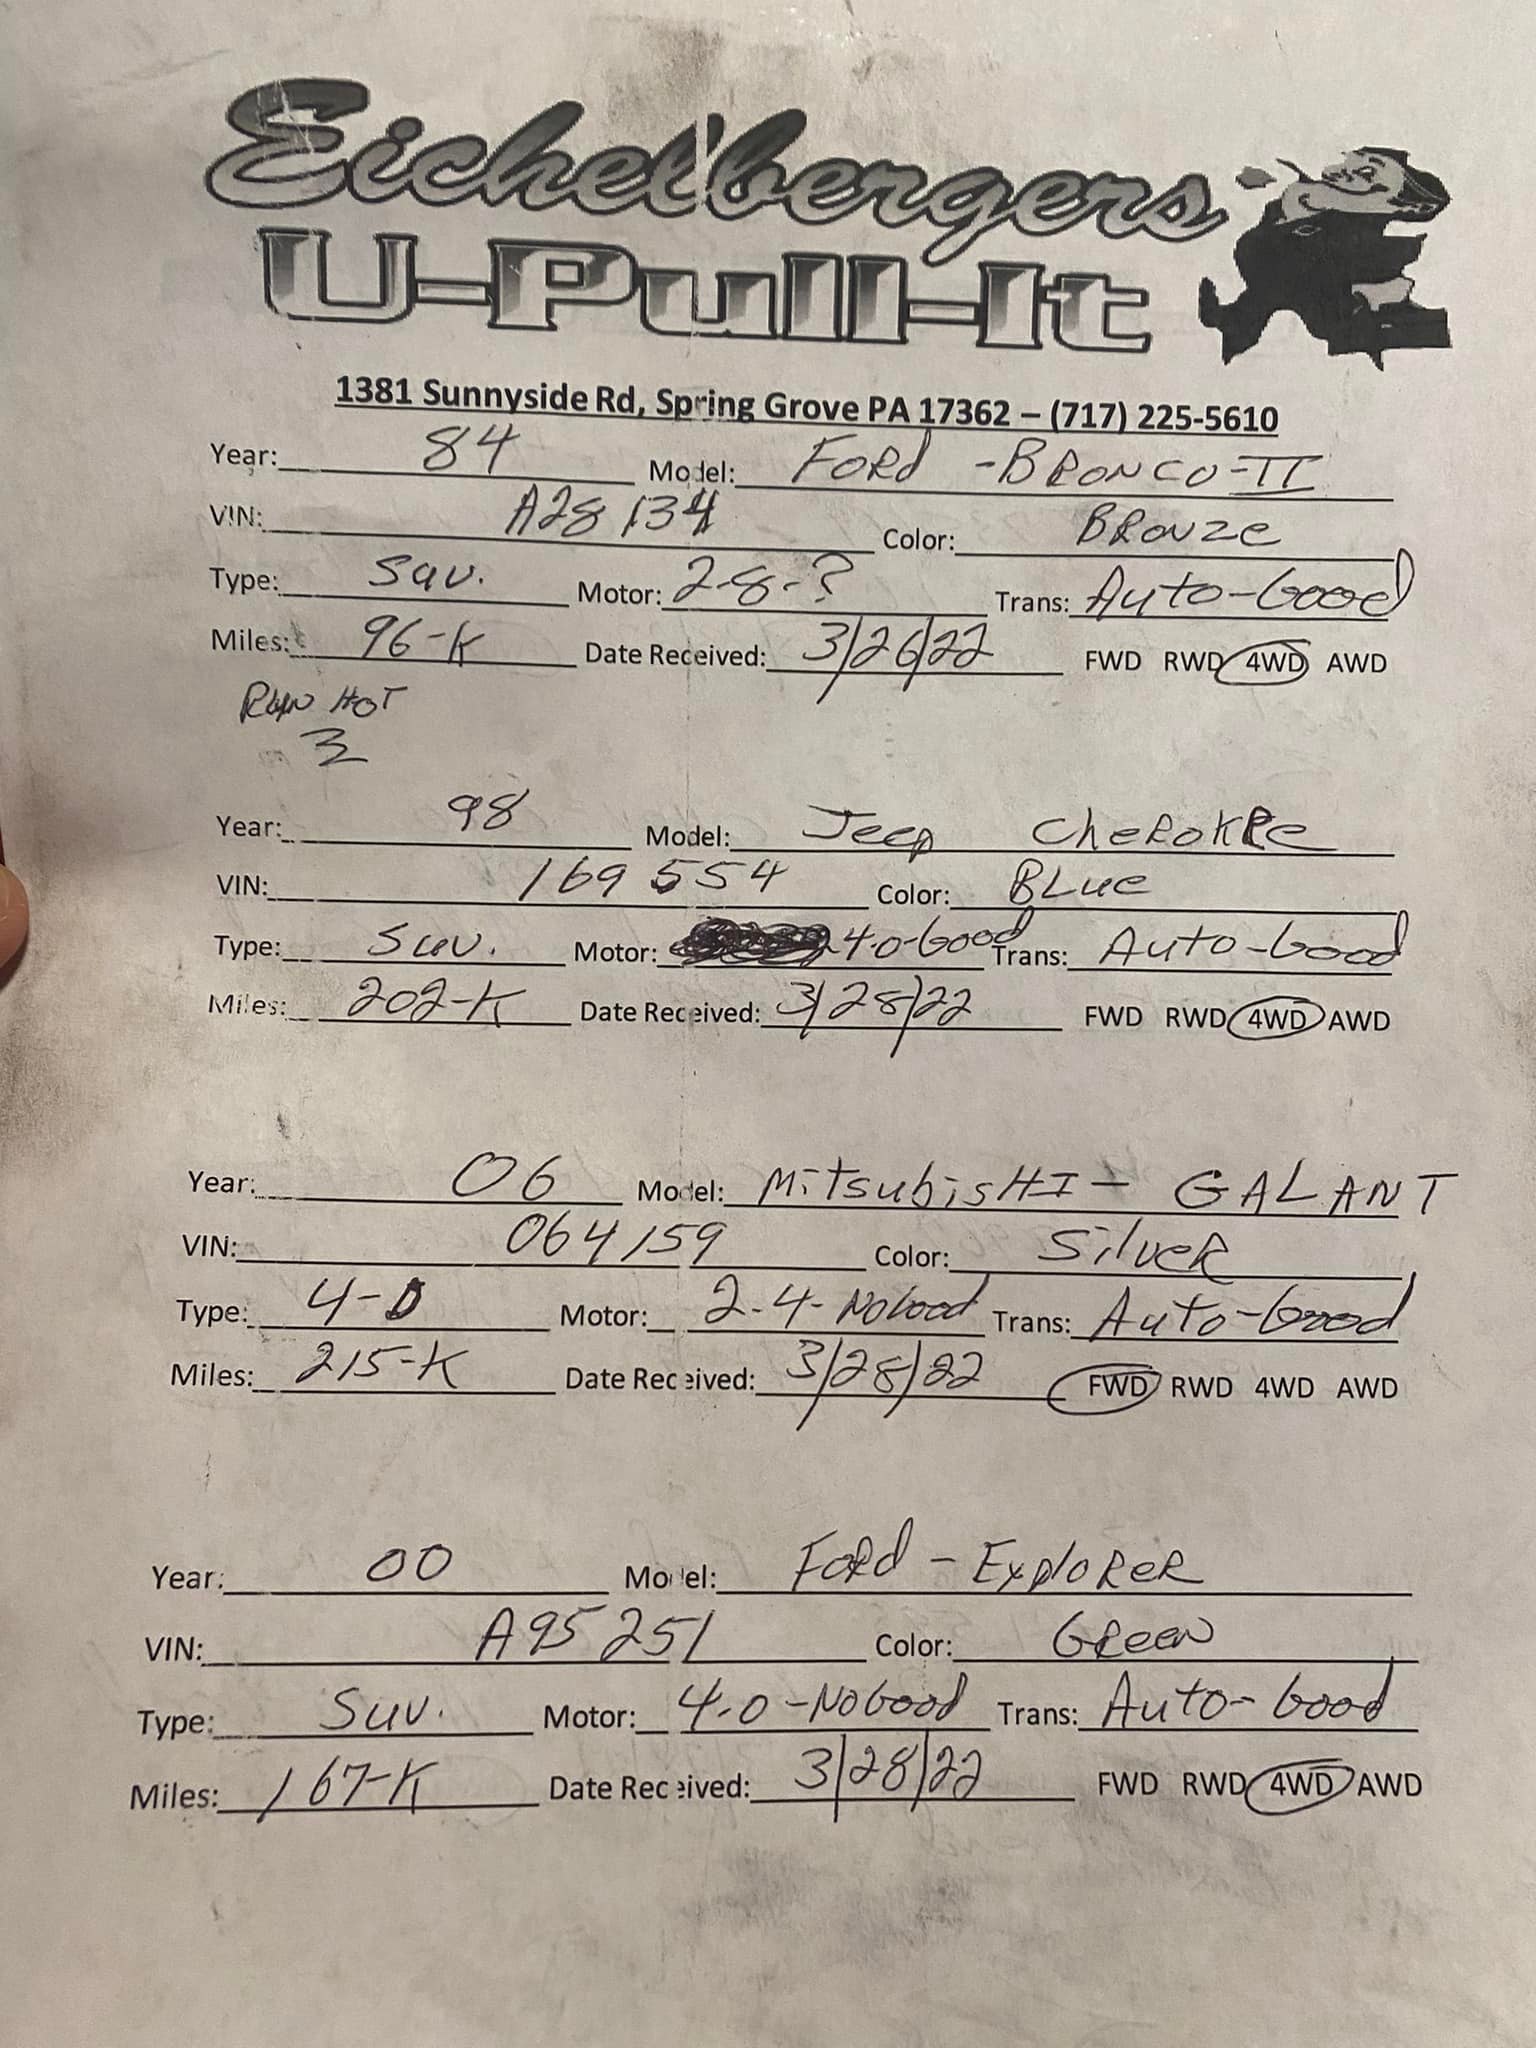 Eichelbergers
U-Pull-It
1381 Sunnyside Rd, Spring Grove PA 17362 – (717) 225-5610
Year: 84 Model: FORd - BRONCO-II
VIN: A28134 Color: BRONZe
Type: Suv. Motor: 2-8-? Trans: Auto-Good
Miles: 96-K Date Received: 3/26/22 FWD RWD 4WD AWD
RAN HOT
Year: 98 Model: Jeep CheROKee
VIN: 169554 Color: BLue
Type: Suv. Motor: 4.0-Good Trans: Auto-Good
Miles: 202-K Date Received: 3/28/22 FWD RWD 4WD AWD
Year: 06 Model: MitsubisHI - GALANT
VIN: 064159 Color: SilveR
Type: 4-D Motor: 2-4-NoGood Trans: Auto-Good
Miles: 215-K Date Received: 3/28/22 FWD RWD 4WD AWD
Year: 00 Model: FoRd - ExploReR
VIN: A95251 Color: GReen
Type: Suv. Motor: 4.0-NoGood Trans: Auto-Good
Miles: 167-K Date Received: 3/28/22 FWD RWD 4WD AWD